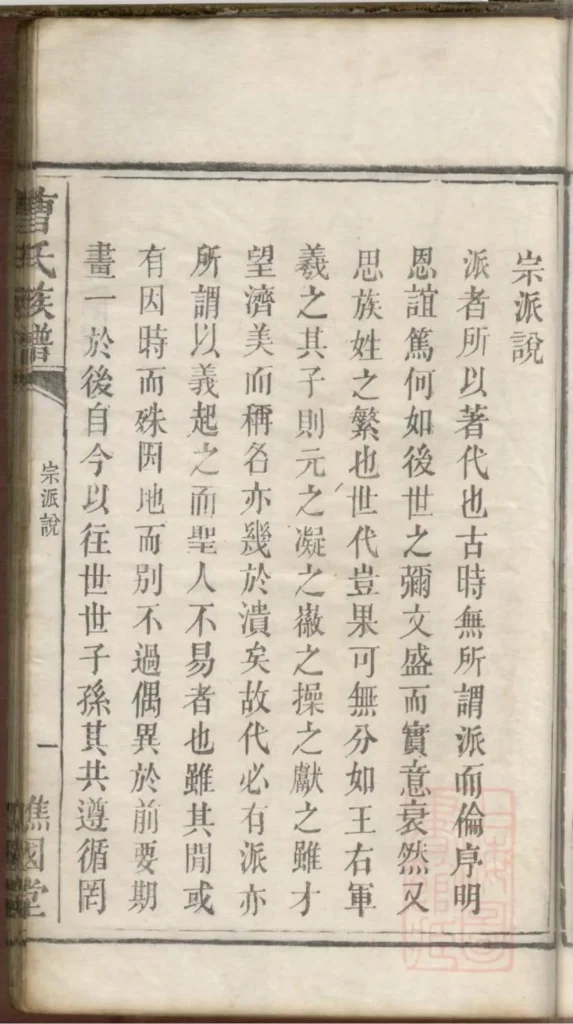 宗派說
派者所以著代也古時無所謂派而倫序明
恩誼篤何如後世之彌文盛而實意衰然又
思族姓之繁也世代豈果可無分如王右軍
羲之其子則元之凝之徽之操之獻之雖才
望濟美而稱名亦幾於潰矣故代必有派亦
所謂以義起之而聖人不易者也雖其閒或
有因時而殊因地而別不過偶異於前要期
畫一於後自今以往世世子孫其共遵循罔
曹氏族譜
宗派說
一
譙國堂